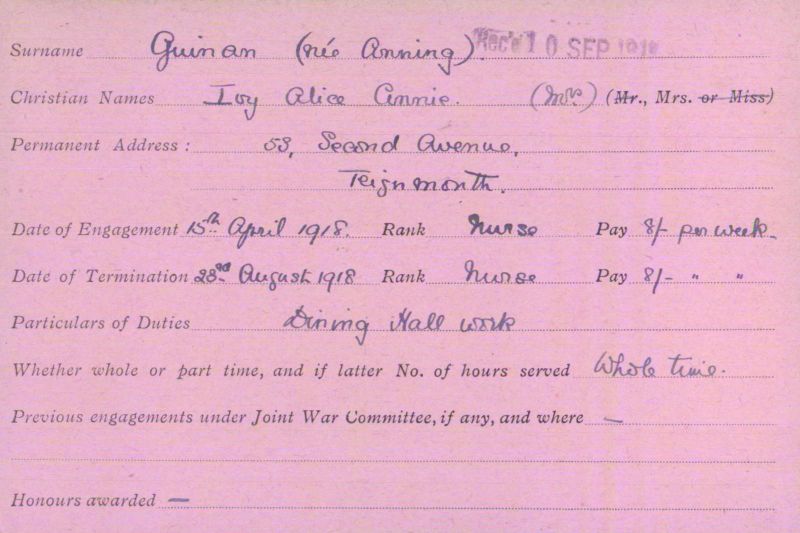 Surname Guinan (née Anning). Rec'd 10 SEP 1918
Christian Names Ivy Alice Annie. (Mrs) (Mr., Mrs. or Miss)
Permanent Address: 53, Second Avenue,
Teignmouth.
Date of Engagement 15th April 1918. Rank Nurse Pay 8/- per week.
Date of Termination 23rd August 1918 Rank Nurse Pay 8/- " "
Particulars of Duties Dining Hall work
Whether whole or part time, and if latter No. of hours served Whole time.
Previous engagements under Joint War Committee, if any, and where —
Honours awarded —